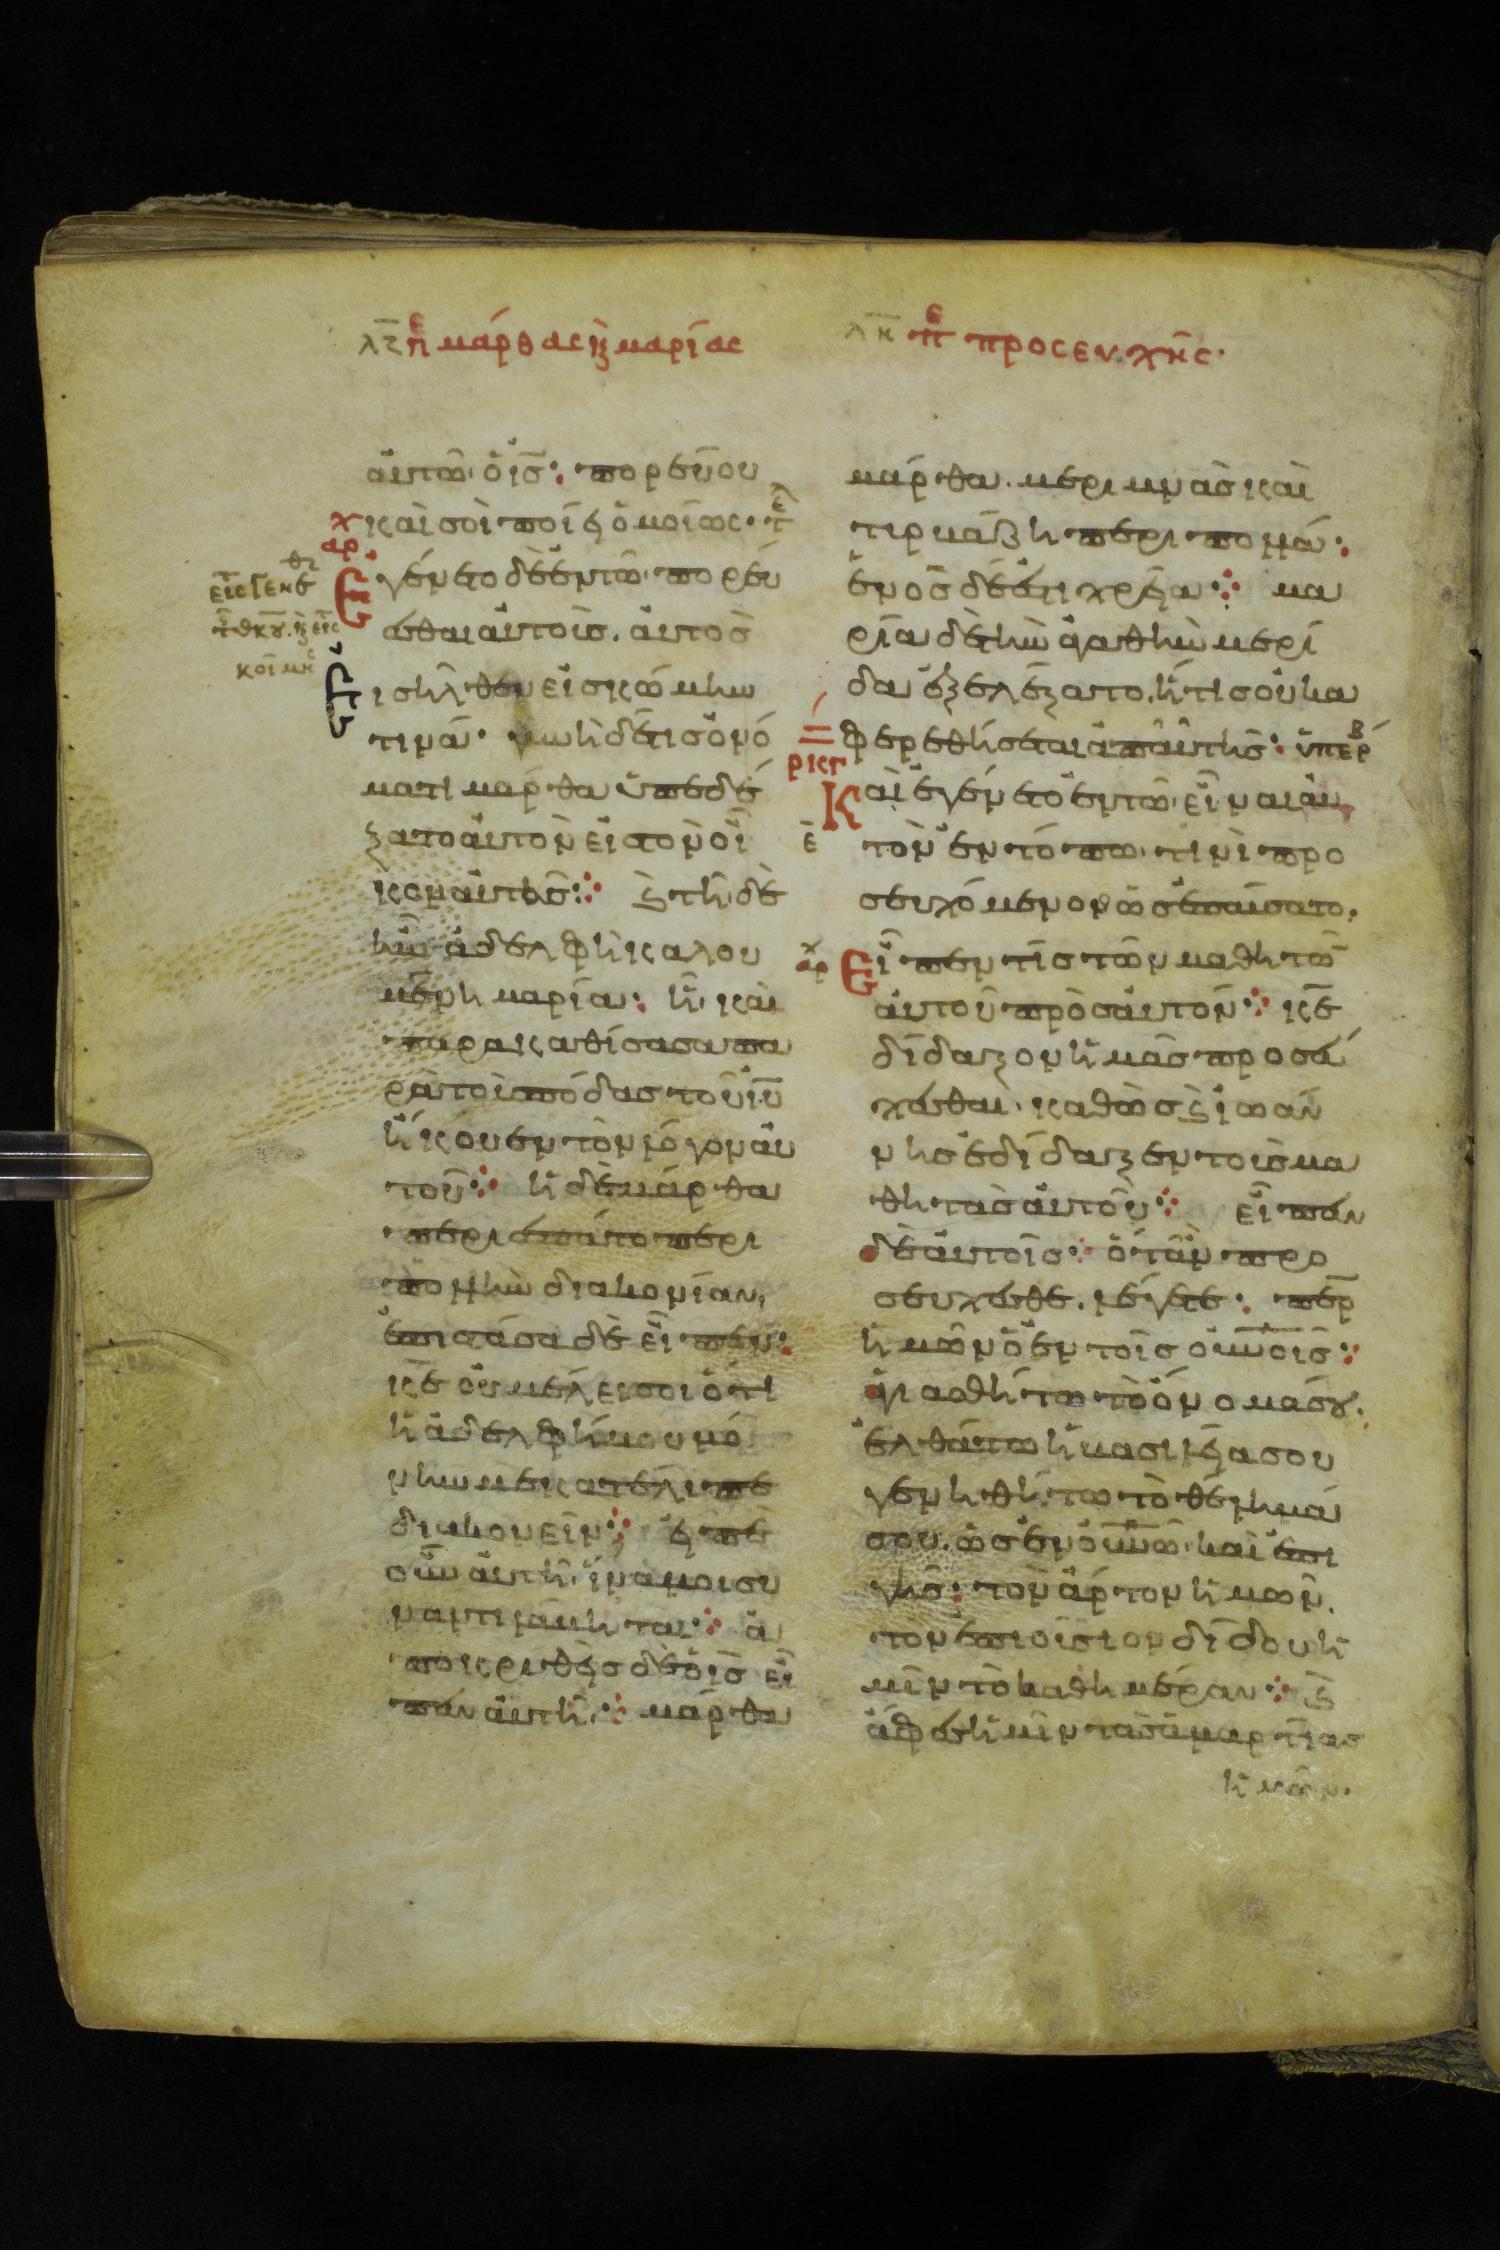 λζ πε μάρθας κ(αὶ) μαρίας
αὐτῶ· ὁ ἰς: πορεύου
καὶ σοὶ ποίει ὁμοίως· τέλ
αρχ
Ἐγένετο δὲ ἐν τῶ πορεύ
εσθαι αὐτοὺς. αὐτὸς
εἰσῆλθεν εἰς κώμην
τινά· γυνὴ δέ τις ὀνό
ματι μάρθα ὑπεδέ
ξατο αὐτὸν εἰς τὸν οἶ
κον αὐτῆς: κ(αὶ) τῆ δὲ
ἦν ἀδελφὴ καλου
μένη μαρία: ἣ καὶ
παρακαθίσασα πα
ρὰ τοὺς πόδας τοῦ ἰυ
ἤκουεν τὸν λόγον αὐ
τοῦ: ἡ δὲ μάρθα
περιεσπάτο περὶ
πολλὴν διακονίαν,
ἐπιστάσα δὲ εἶπεν:
κε οὐ μέλει σοι ὅτι
ἡ ἀδελφή μου μό
νην με κατέλιπε
διακονεῖν: εἰπὲ
οὖν αὐτῆ, ἵνα μοι συ
ναντιλάβηται: ἀ
ποκριθεὶς δὲ ὁ ἰς εἶ
πεν αὐτῆ: μάρθα
λη πε προσευχῆς·
μάρθα. μεριμνᾶς καὶ
τυρβάζη περὶ πολλά:
ἑνὸς δέ ἐστι χρεία: μα
ρία δὲ τὴν ἀγαθὴν μερί
δα ἐξελέξατο, ἥτις οὐκ ἀ
φερεθήσεται ἀπ' αὐτῆς: ὑπέρβ
ρκγ
Καὶ ἐγένετο ἐν τῶ εἶναι αὐ
τὸν ἐν τόπω τινὶ προ
σευχόμενον ὡς ἐπαύσατο,
αρχ
εἶπεν τίς τῶν μαθητῶν
αὐτοῦ πρὸς αὐτόν: κε
δίδαξον ἡμᾶς προσεύ
χεσθαι, καθὼς κ(αὶ) ἰωάν
νης ἐδίδαξεν τοὺς μα
θητὰς αὐτοῦ: εἶπεν
δὲ αὐτοῖς: ὅταν προ
σεύχεσθε. λέγετε: περ
ἡμῶν ὁ ἐν τοῖς οὐνοις:
ἁγιασθήτω τὸ ὄνομά σου.
ἐλθάτω ἡ βασιλεία σου
γενηθήτω τὸ θέλημά
σου. ὡς ἐν οὐνω καὶ ἐπὶ
γῆς: τὸν ἄρτον ἡμῶν.
τὸν ἐπιούσιον δίδου ἡ
μῖν τὸ καθημέραν: κ(αὶ)
ἄφες ἡμῖν τὰς ἁμαρτίας
ἡμῶν.